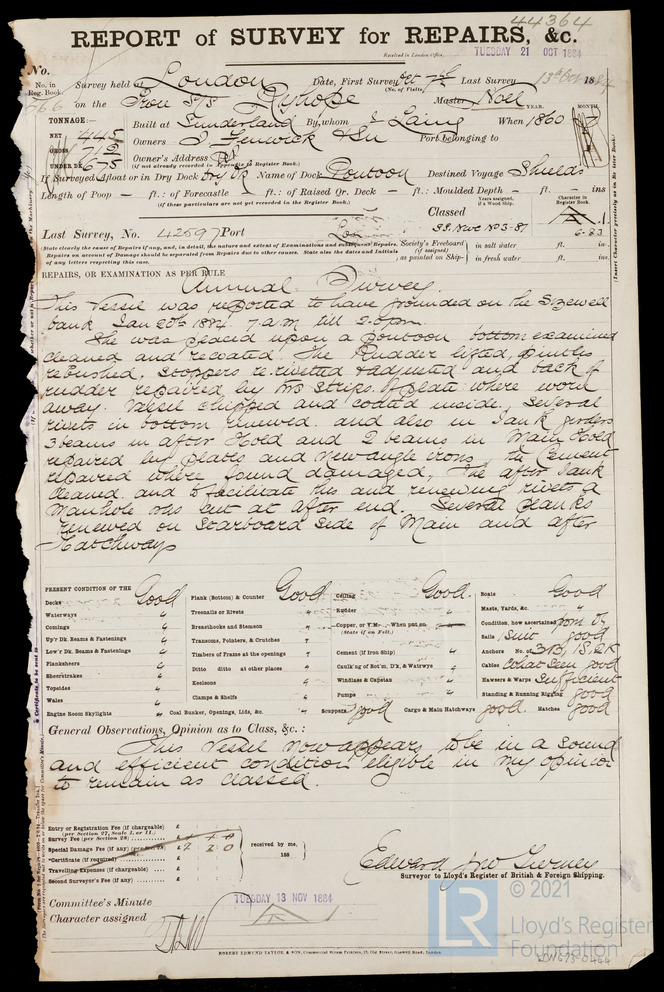 44364
REPORT of SURVEY for REPAIRS, &c.
Received in London Office,
TUESDAY 21 OCT 1884
No.
No. in Reg. Book.
Survey held at London Date, First Survey Oct 7th Last Survey 13th Oct 1884
(No. of Visits)
on the Iron S/S Ryhope Master Noel
TONNAGE:— Built at Sunderland By whom J Laing When 1860
YEAR. MONTH
NET 445
GROSS 715 Owners J Fenwick & Son Port belonging to
UNDER DK 675 Owner's Address
(if not already recorded in Appendix to Register Book.)
If Surveyed Afloat or in Dry Dock Dry Dk Name of Dock Pontoon Destined Voyage Shields
Length of Poop — ft.: of Forecastle ft.: of Raised Qr. Deck — ft.: Moulded Depth — ft. — ins
(if these particulars are not yet recorded in the Register Book.)
Years assigned, if a Wood Ship.
Character in Register Book.
Classed
Last Survey, No. 42597 Port Lon
S.S. Nwc No 3-81
6.83
(State clearly the cause of Repairs if any, and, in detail, the nature and extent of Examinations and subsequent Repairs.
Repairs on account of Damage should be separated from Repairs due to other causes. State also the dates and initials
of any letters respecting this case.
Society's Freeboard (if assigned) as painted on Ship
in salt water ft. in.
in fresh water ft. in.
REPAIRS, OR EXAMINATION AS PER RULE
Annual Survey.
This Vessel was reported to have grounded on the Sizewell
bank Jan 20th 1884. 7 a.m till 2.0 pm.
She was placed upon a pontoon bottom examined
cleaned and recoated. The Rudder lifted, pintles
rebushed, stoppers re.rivetted & adjusted and back of
rudder repaired by two strips of plate where worn
away. Vessel chipped and coated inside. Several
rivets in bottom renewed. and also in Tank girders
3 beams in after Hold and 2 beams in Main Hold
repaired by plates and new angle irons, the Cement
repaired where found damaged, The after Tank
cleaned. and to facilitate this and renewing rivets a
Manhole was cut at after end. Several planks
renewed on Starboard side of Main and after
Hatchways
PRESENT CONDITION OF THE
Decks Good
Waterways "
Comings "
Up'r Dk. Beams & Fastenings "
Low'r Dk. Beams & Fastenings "
Planksheers "
Sheerstrakes "
Topsides "
Wales "
Engine Room Skylights "
Plank (Bottom) & Counter Good
Treenails or Rivets "
Breasthooks and Stemson "
Transoms, Pointers, & Crutches "
Timbers of Frame at the openings "
Ditto ditto at other places "
Keelsons "
Clamps & Shelfs "
Coal Bunker, Openings, Lids, &c. "
Ceiling Good
Rudder "
Copper, or Y.M. When put on
(State if on Felt.)
Cement (if Iron Ship) "
Caulk'ng of Bot'm, D'k, & Watwys "
Windlass & Capstan "
Pumps "
Scuppers good
Cargo & Main Hatchways good.
Boats Good
Masts, Yards, &c. "
Condition, how ascertained from Dk
Sails 1 Suit good
Anchors No. of 3 B, 1 S, 2 K
Cables what seen good
Hawsers & Warps Sufficient
Standing & Running Rigging good
Hatches good
General Observations, Opinion as to Class, &c.:
This Vessel now appears to be in a sound
and efficient condition eligible in my opinion
to remain as classed.
Entry or Registration Fee (if chargeable) £
(per Section 27, Scale I. or II.)
Survey Fee (per Section 28) £
Special Damage Fee (if any) £ 2 2 0
*Certificate (if required) £
Travelling Expenses (if chargeable) £
Second Surveyor's Fee (if any) £
received by me,
188
Edward Jno Tierney
Surveyor to Lloyd's Register of British & Foreign Shipping.
Committee's Minute TUESDAY 13 NOV 1884
Character assigned
ROBERT EDMUND TAYLOR & SON, Commercial Steam Printers, 19, Old Street, Goswell Road, London.
LR
© 2021
Lloyd's Register
Foundation